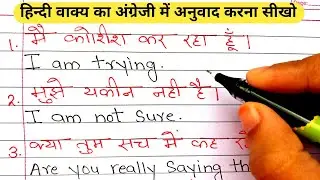 हिन्दी वाक्य का अंग्रेजी में अनुवाद करना सीखो
1. मैं कोशिश कर रहा हूँ।
I am trying.
2. मुझे यकीन नहीं है।
I am not sure.
3. क्या तुम सच में कह
Are you really Saying